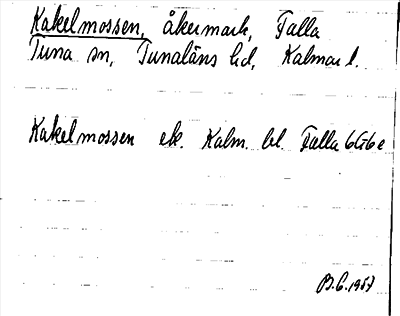 Kakelmossen, åkermark, Falla
Tuna sn, Tunaläns hd, Kalmar l.
Kakelmossen ek. Kalm. bl. Falla 6G6e
B.C. 1957